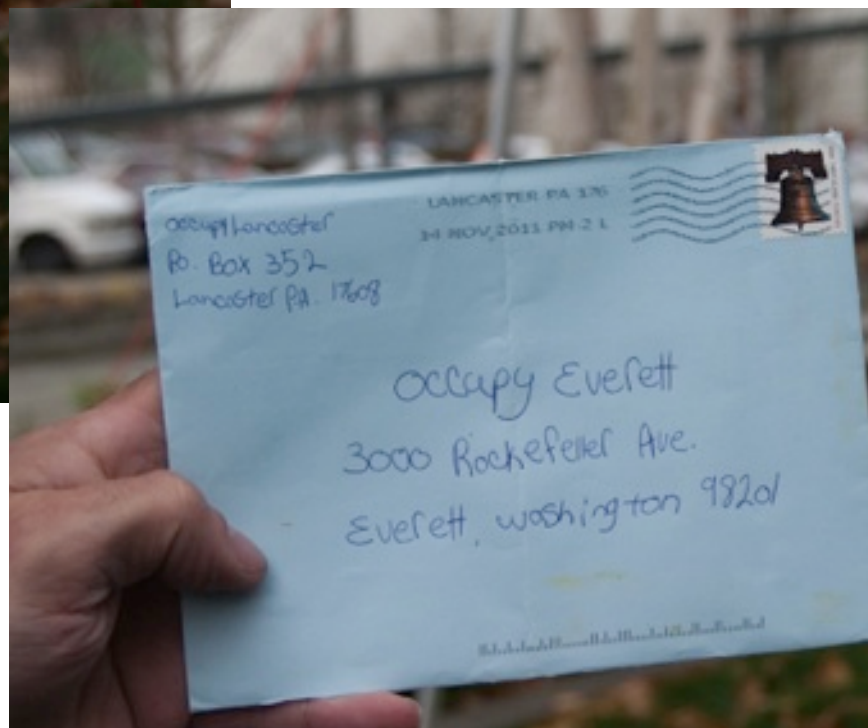 Occupy Lancaster
P.O. Box 352
Lancaster PA. 17608
LANCASTER PA 176
14 NOV 2011 PM 2 L
Occupy Everett
3000 Rockefeller Ave.
Everett, Washington 98201